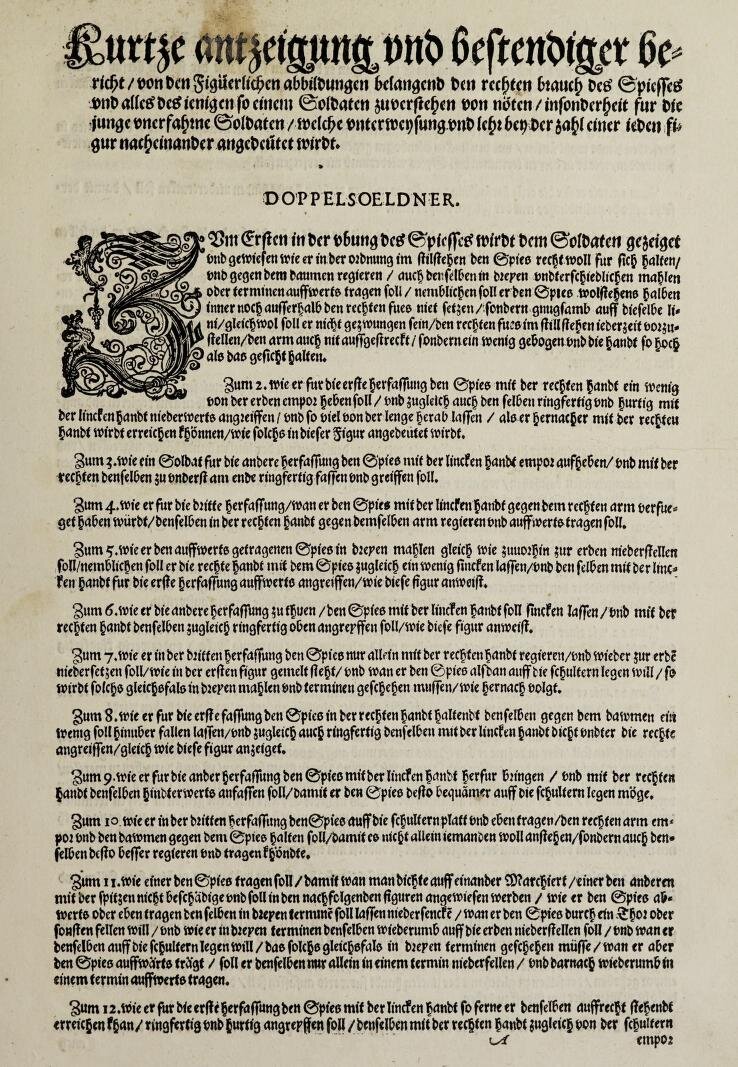 Kurtze antzeigung vnd bestendiger be⸗
richt / von den Figüerlichen abbildungen belangend den rechten brauch des Spiesses
vnd alles des ienigen so einem Soldaten zuverstehen von nöten / insonderheit fur die
junge vnerfahrne Soldaten / welche vnterweysung vnd lehr bey der zahl einer ieden fi⸗
gur nacheinander angedeütet wirdt.
DOPPELSOELDNER.
ZVm Ersten in der vbung des Spiesses wirdt dem Soldaten gezeiget
vnd gewiesen wie er in der ordnung im stilstehen den Spies recht woll fur sich halten /
vnd gegen dem daumen regieren / auch denselben in dreyen vndterschiedlichen mahlen
oder terminen auffwerts tragen soll / nemblichen soll er den Spies wolstehens halben
inner noch ausserhalb den rechten fues niet setzen / sondern gnugsamb auff dieselbe li⸗
ni / gleichwol soll er nicht gezwungen sein / den rechten fues im still stehen iederzeit vorzu⸗
stellen / den arm auch nit auffgestreckt / sondern ein wenig gebogen vnd die handt so hoch
als das gesicht halten.
Zum 2. wie er fur die erste herfassung den Spies mit der rechten handt ein wenig
von der erden empor heben soll / vnd zugleich auch den selben ringfertig vnd hurtig mit
der lincken handt niederwerts angreiffen / vnd so viel von der lenge herab lassen / als er hernacher mit der rechten
handt wirdt erreichen khönnen / wie solchs in dieser Figur angedeutet wirdt.
Zum 3. wie ein Soldat fur die andere herfassung den Spies mit der lincken handt empor aufheben / vnd mit der
rechten denselben zu vnderst am ende ringfertig fassen vnd greiffen soll.
Zum 4. wie er fur die dritte herfassung / wan er den Spies mit der lincken handt gegen dem rechten arm verfue⸗
get haben würdt / denselben in der rechten handt gegen demselben arm regieren vnd auffwerts tragen soll.
Zum 5. wie er den auffwerts getragenen Spies in dreyen mahlen gleich wie zuuorhin zur erden niederstellen
soll / nemblichen soll er die rechte handt mit dem Spies zugleich ein wenig sincken lassen / vnd den selben mit der linc⸗
ken handt fur die erste herfassung auffwerts angreiffen / wie diese figur anweist.
Zum 6. wie er die andere herfassung zu thuen / den Spies mit der lincken handt soll sincken lassen / vnd mit der
rechten handt denselben zugleich ringfertig oben angreyffen soll / wie diese figur anweist.
Zum 7. wie er in der dritten herfassung den Spies nur allein mit der rechten handt regieren / vnd wieder zur erdē
niedersetzen soll / wie in der ersten figur gemelt steht / vnd wan er den Spies alsdan auff die schultern legen will / so
wirdt solchs gleichsfals in dreyen mahlen vnd terminen geschehen mussen / wie hernach volgt.
Zum 8. wie er fur die erste fassung den Spies in der rechten handt haltendt denselben gegen dem bawmen ein
wenig soll hinuber fallen lassen / vnd zugleich auch ringfertig denselben mit der lincken handt dicht vndter die rechte
angreiffen / gleich wie diese figur anzeiget.
Zum 9. wie er fur die ander herfassung den Spies mit der lincken handt herfur bringen / vnd mit der rechten
handt denselben hindterwerts anfassen soll / damit er den Spies desto bequämer auff die schultern legen möge.
Zum 10. wie er in der dritten herfassung den Spies auff die schultern platt vnd eben tragen / den rechten arm em⸗
por vnd den bawmen gegen dem Spies halten soll / damit es nicht allein iemanden woll anstehen / sondern auch den⸗
selben desto besser regieren vnd tragen khöndte.
Zum 11. wie einer den Spies tragen soll / damit wan man dichte auff einander Marchiert / einer den anderen
mit der spitzen nicht beschädige vnd soll in den nachfolgenden figuren angewiesen werden / wie er den Spies ab⸗
werts oder eben tragen den selben in dreyen terminē soll lassen niedersenckē / wan er den Spies durch ein Thor oder
sonsten fellen will / vnd wie er in dreyen terminen denselben wiederumb auff die erden niederstellen soll / vnd wan er
denselben auff die schultern legen will / das solchs gleichsfals in dreyen terminen geschehen müsse / wan er aber
den Spies auffwärts trägt / soll er denselben nur allein in einem termin niederfellen / vnd darnach wiederumb in
einem termin auffwerts tragen.
Zum 12. wie er fur die erste herfassung den Spies mit der lincken handt so ferne er denselben auffrecht stehendt
erreichen khan / ringfertig vnd hurtig angreyffen soll / denselben mit der rechten handt zugleich von der schultern
A empor